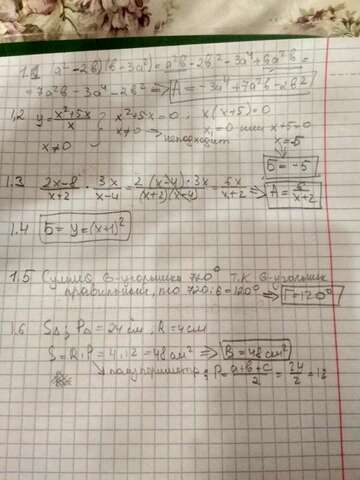 1.1 (a²-2b)(b-3a²) = a²b-2b²-3a⁴+6a²b =
= 7a²b-3a⁴-2b² ⇒ A = -3a⁴+7a²b-2b²
1.2 y = (x²+5x)/x } x²+5x=0, x(x+5)=0
x≠0 x≠0 → неподходит x₁=0 или x+5=0
x=-5
Б = -5
1.3 (2x-8)/(x+2) · 3x/(x-4) = 2(x-4)·3x/((x+2)(x-4)) = 6x/(x+2) ⇒ A = 6/(x+2)
1.4 Б = y=(x+1)²
1.5 Сумма 6-угольника 720° т.к 6-угольник
правильный, то 720:6=120° ⇒ Г=120°
1.6 SΔ; PΔ=24см, R=4см
S=R·P=4·12=48см² ⇒ В=48см²
→ полупериметр; P=(a+b+c)/2=24/2=12